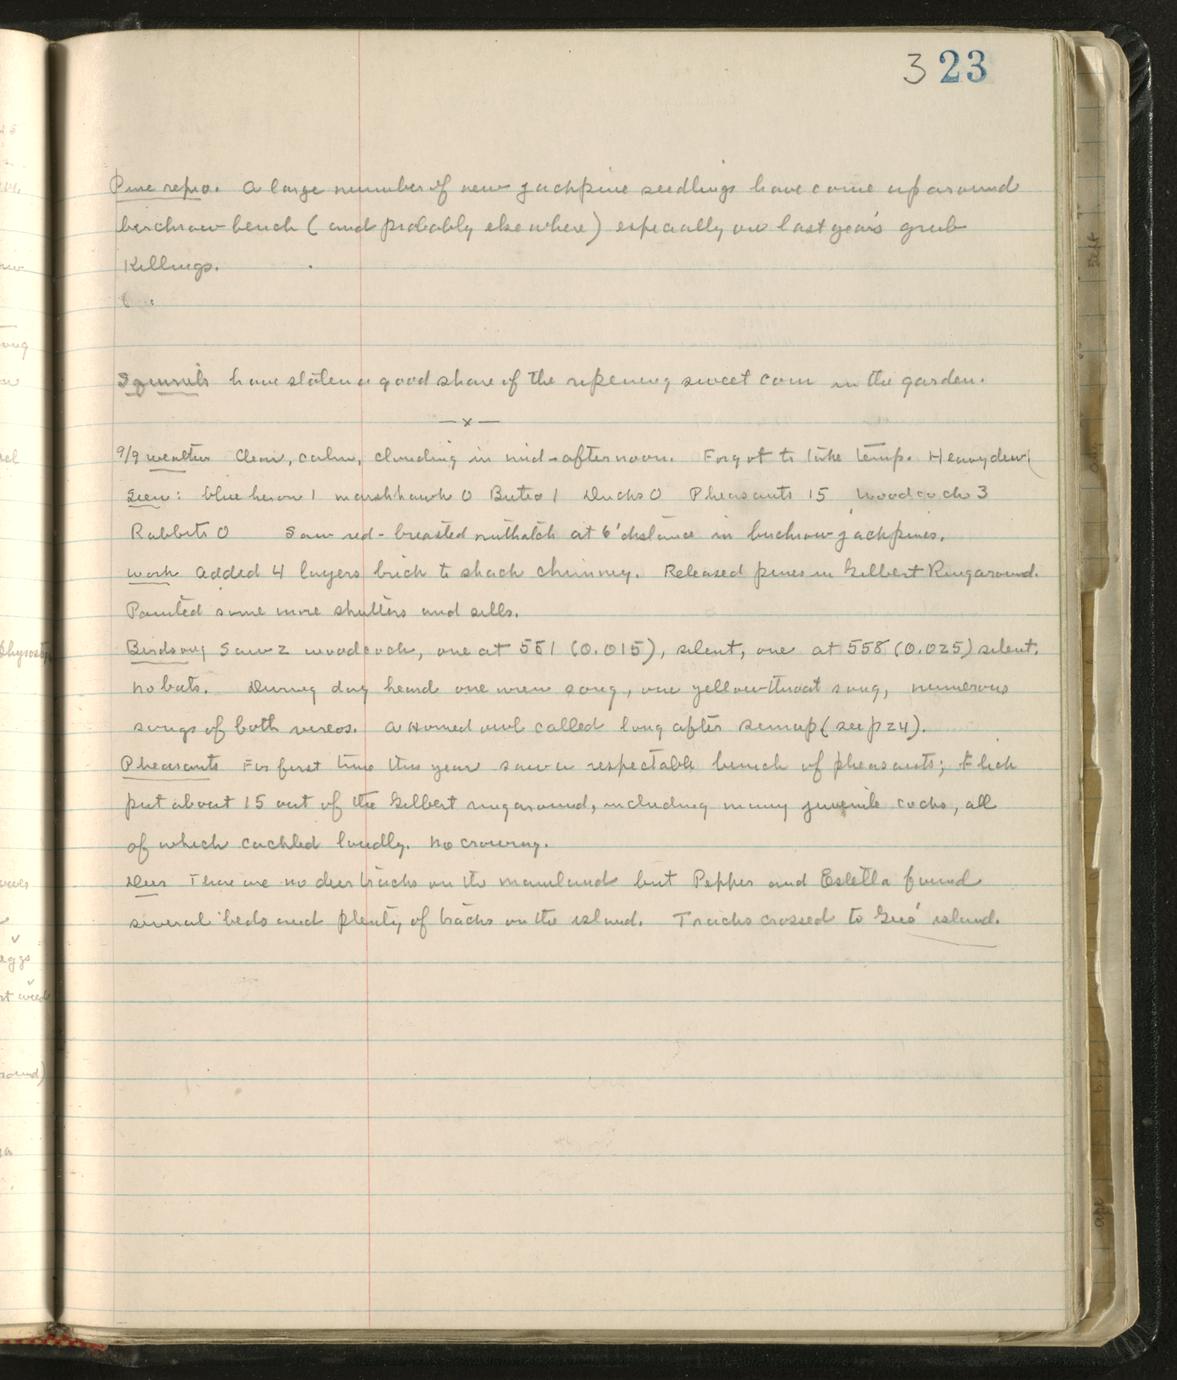 323
Pine repro. A large number of new jackpine seedlings have come up around
birchrow bench (and probably elsewhere) especially on last year's grub
killings.
Squirrels have stolen a good share of the ripening sweet corn in the garden.
—x—
9/9 weather Clear, calm, clouding in mid-afternoon. Forgot to take temp. Heavy dew
Seen: blue heron 1 marshhawk 0 Buteo 1 Ducks 0 Pheasants 15 Woodcock 3
Rabbits 0 Saw red-breasted nuthatch at 6' distance in birchrow jackpines.
Work Added 4 layers brick to shack chimney. Released pines in Gilbert Ringaround.
Painted some more shutters and sills.
Birdsong Saw 2 woodcock, one at 551 (0.015), silent, one at 558 (0.025) silent.
No bats. During day heard one wren song, one yellowthroat song, numerous
songs of both vireos. A Horned owl called long after sunup (see p 24).
Pheasants For first time this year saw a respectable bunch of pheasants; Flick
put about 15 out of the Gilbert ringaround, including many juvenile cocks, all
of which cackled loudly. No crowing.
Deer There are no deer tracks on the mainland but Pepper and Estella found
several beds and plenty of tracks on the island. Tracks crossed to Gus' island.